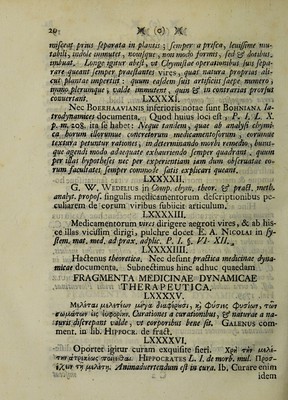 20 ❊ (o) ❊
miscrat prius separata in plantis ; semper a prisca, levissime mu-
tabili, indole immutet, nonisque, non modo formis, sed & dotibus,
imbuat. Longe igitur abest, ut Chymiae operationibus suis sepa-
rare queant semper praestantes vires, quas natura propriis ali-
cui plantae impertit : quum easdem suis artificiis saepe numero,
imano plerumque, valde immutent, quin & in contrarias prorsus
convertant.
LXXXXI.
Nec BOERHAAVIANIS inferioris notae sunt BOHNIANA Ia-
trodynamices documenta. Quod huius loci est, P. I. L. X.
p. m. 208. ita se habet: Neque tandem, quae ab analysi chymi-
ca horum illorumue concretorum medicamentosorum, eorumue
textura petuntur rationes, in determinando morbi remedio, huius-
que agendi modo adaequate exhauriendo semper quadrant, quum
per illas hypotheses nec per experientiam iam dum obseruatae eo-
rum facultates, semper commode satis explicari queant.
LXXXXII.
G. W. WEDELIUS in Comp. chym. theor. & pract. meth.
analyt. propos. singulis medicamentorum descriptionibus pe-
culiarem de eorum viribus subiicit articulum.
LXXXXIII.
Medicamentorum usus dirigere aegroti vires, & ab his-
ce illas vicissim dirigi, pulchre docet E. A. NICOLAI in sy-
stem. mat. med. ad prax. adplic. P. I. §. VI- XII.
LXXXXIIII.
Hactenus theoretica. Nec desunt practica medicinae dyna-
micae documenta. Subnectimus hinc adhuc quaedam
FRAGMENTA MEDICINAE DYNAMICAE
THERAPEUTICA.
LXXXXV.
Curationes a curationibus, & naturae a na-
turis discrepant valde, vt corporibus bene sit. GALENUS com-
ment. in lib. HIPPOCR. de fract.
LXXXXVI.
Oportet igitur curam exquisite fieri.
HIPPOCRATES L. I. de morb. mul.
Animaduertendum est in cura. Ib. Curare enim
idem